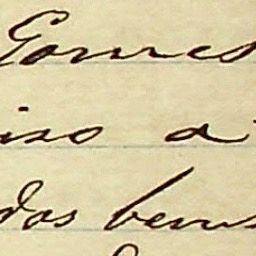 Gomes
iso a
dos bens